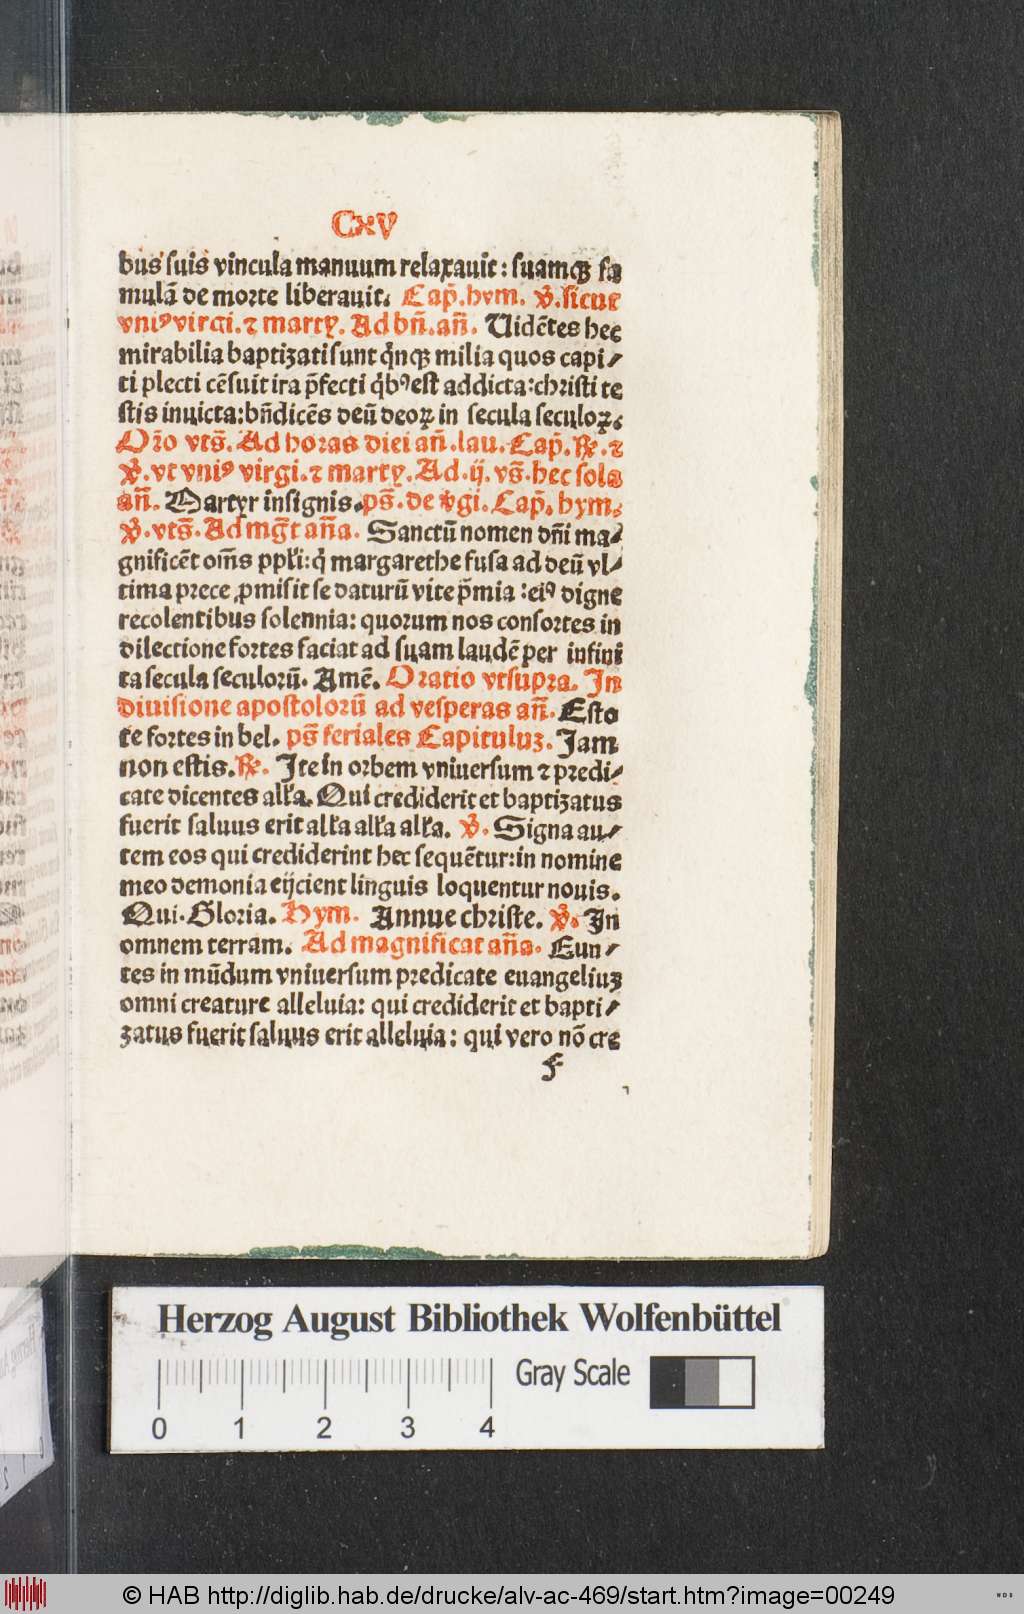 CxV
bus suis vincula manuum relaxauit: suamqꝫ fa
mulā de morte liberauit. Cap̄.hym. ℣.sicut
vniꝰ virgi.⁊ marty. Ad bn̄.an̄. Uidētes hec
mirabilia baptizati sunt q̇nqꝫ milia quos capi/
ti plecti cēsuit ira p̄fecti q̇bꝰ est addicta:christi te
stis inuicta:bn̄dicēs deū deoꝝ in secula seculoꝝ.
Oꝛo vts̄. Ad horas diei an̄.lau. Cap̄. ℟.⁊
℣.vt vniꝰ virgi.⁊ marty. Ad.ij. vs̄.hec sola
an̄. Martyr insignis. ps̄.de v̄gi. Cap̄. hym.
℣.vts̄. Ad mg̅t an̄a. Sanctū nomen dn̄i ma/
gnificēt om̄s ppłi:q̇ margarethe fusa ad deū vl/
tima prece ꝓmisit se daturū vite p̄mia :eiꝰ digne
recolentibus solennia: quorum nos consortes in
dilectione fortes faciat ad suam laudē per infini
ta secula seculorū. Amē. Oratio vtsupra. In
diuisione apostolorū ad vesperas an̄. Esto
te fortes in bel. ps̄ feriales Capituluꝫ. Jam
non estis. ℟. Ite in orbem vniuersum ⁊ predi/
cate dicentes alła. Qui crediderit et baptizatus
fuerit saluus erit alła alła alła. ℣. Signa au/
tem eos qui crediderint hec sequētur:in nomine
meo demonia eijcient linguis loquentur nouis.
Qui. Gloria. Hym. Annue christe. ℣. In
omnem terram. Ad magnificat an̄a. Eun/
tes in mūdum vniuersum predicate euangeliuꝫ
omni creature alleluia: qui crediderit et bapti/
zatus fuerit saluus erit alleluia: qui vero nō cre
f
Herzog August Bibliothek Wolfenbüttel
Gray Scale
0 1 2 3 4
© HAB http://diglib.hab.de/drucke/alv-ac-469/start.htm?image=00249